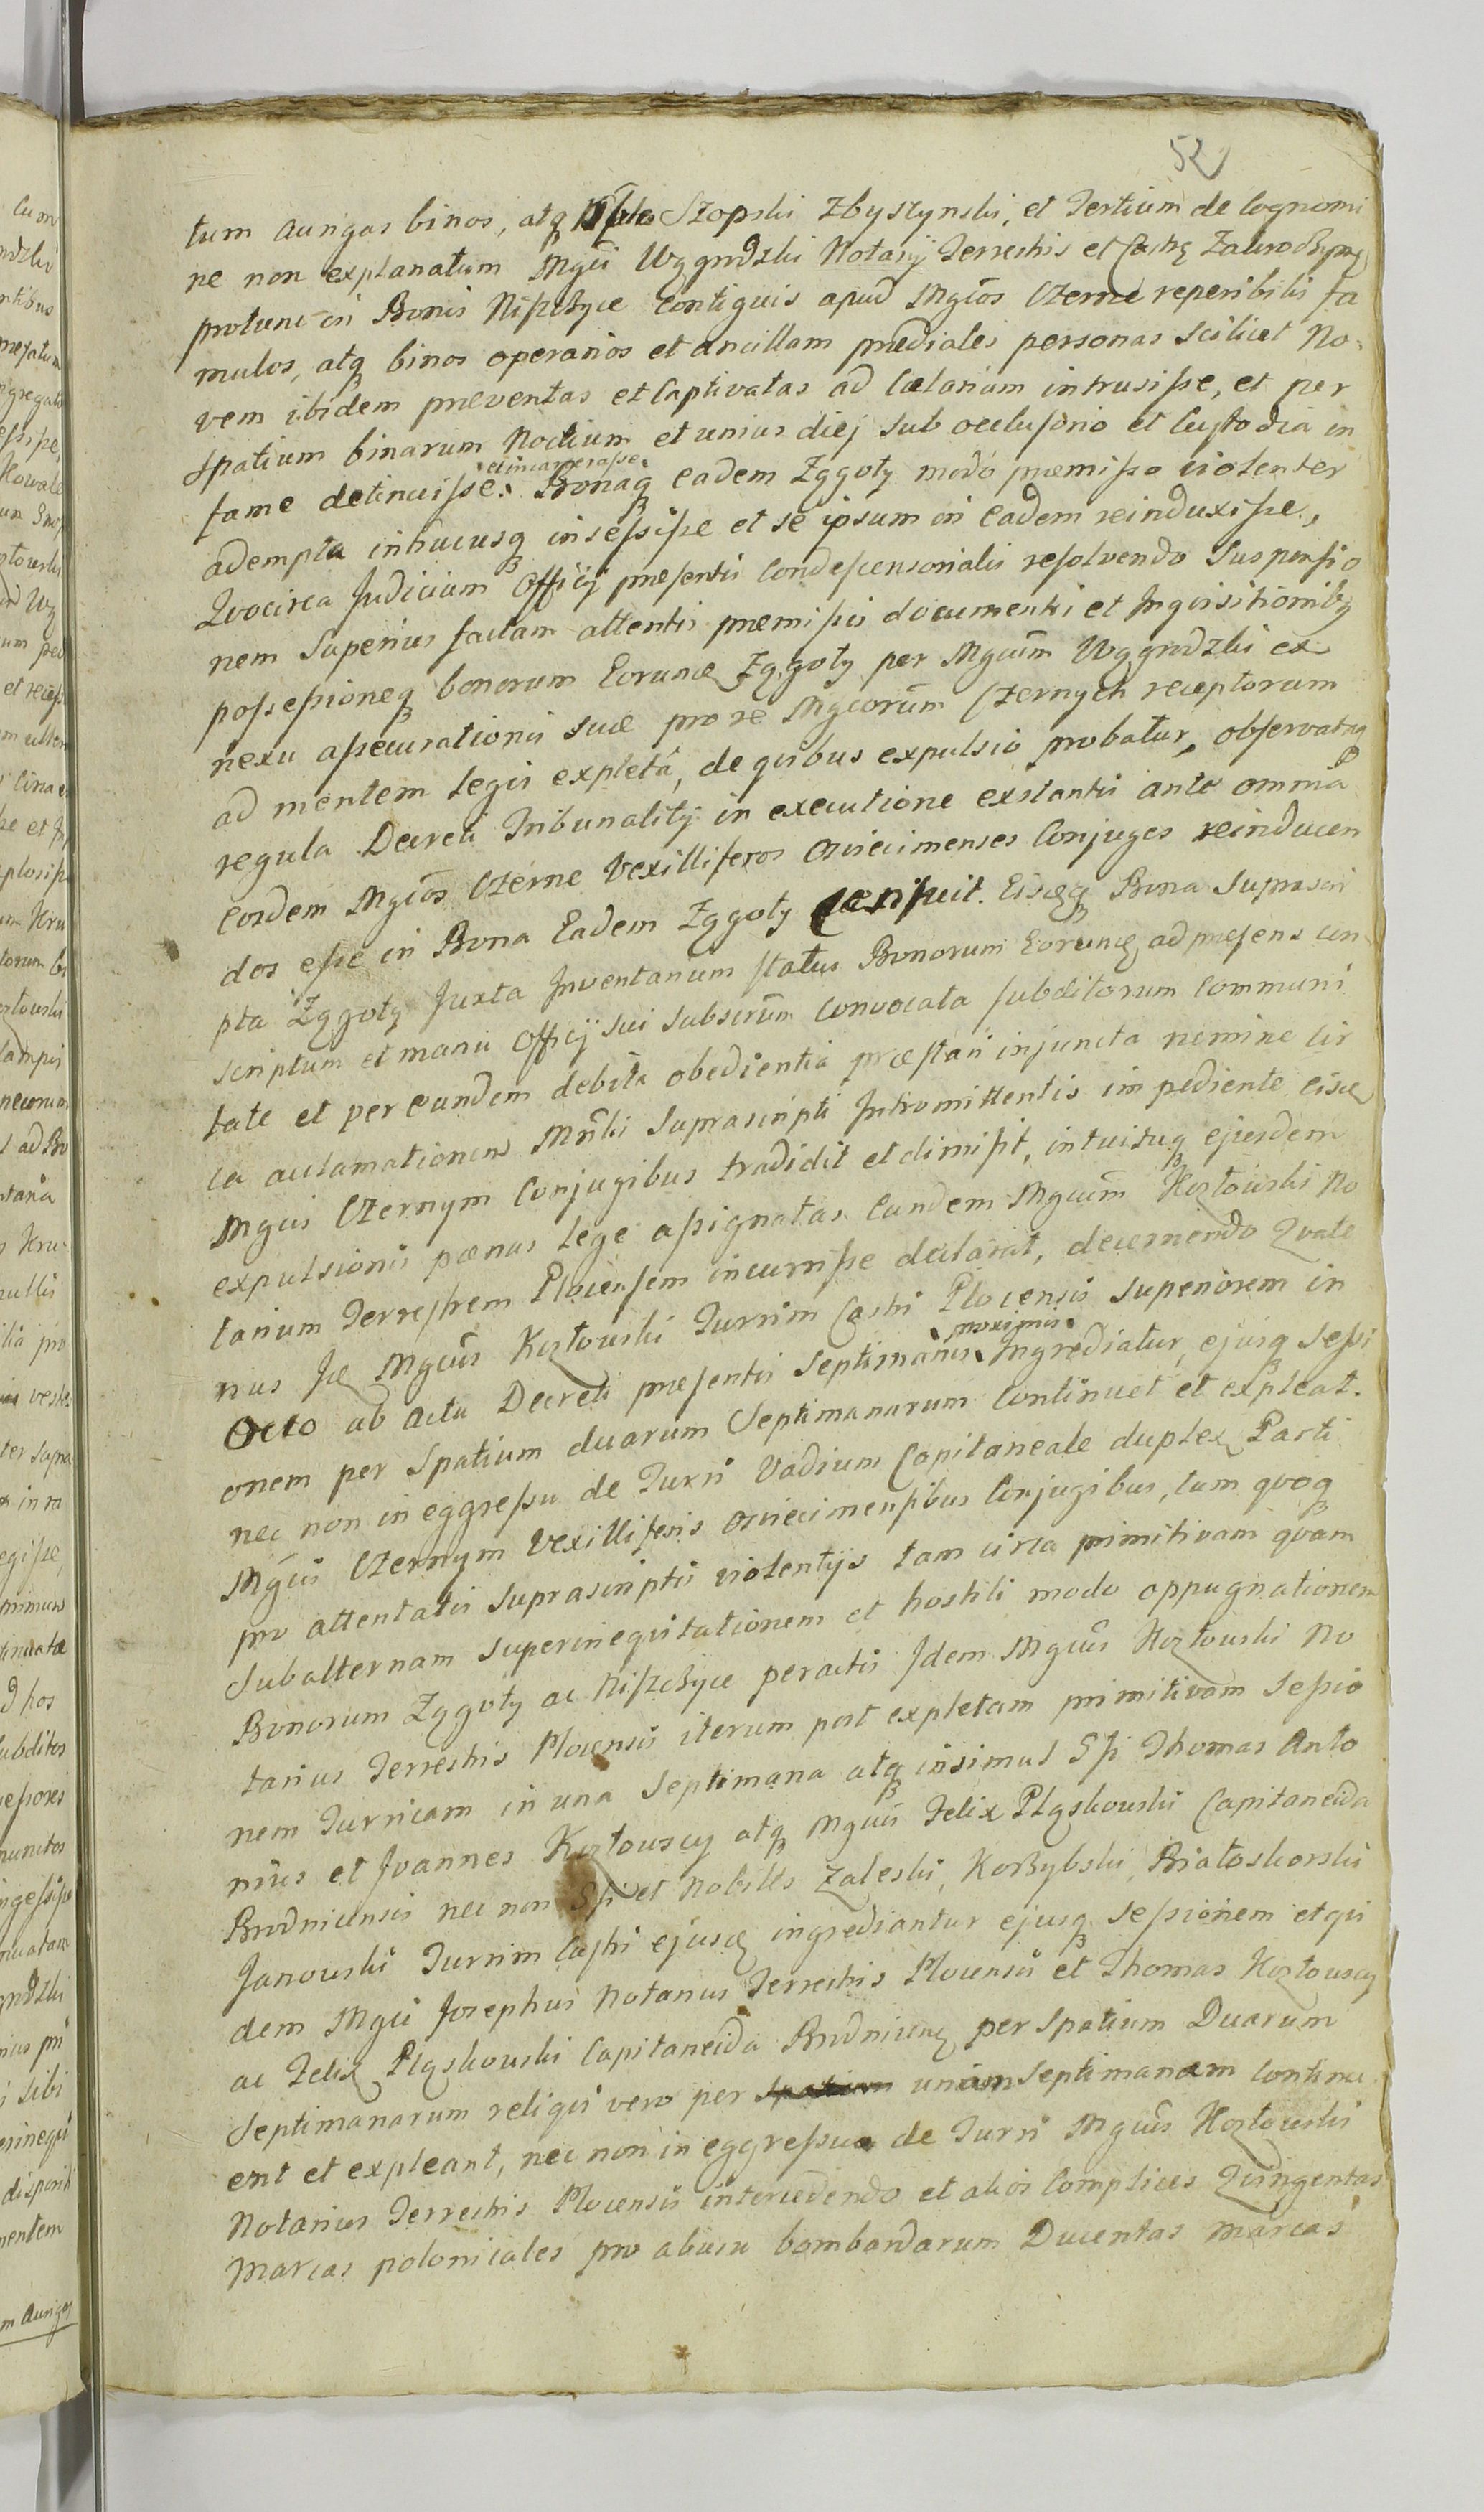 52
tum aurigas binos, atq Szopski Zbyszynski, et Tertium de Cognomi
ne non explanatum Mgci Wggrodzki Notarij Terrestris et Castr
protunc in Bonis Nisczyce Contiguis apud Mgcos Czerne reperibilis fa
mulos, atq binos operarios et ancillam prædiales personas scilicet No,
vem ibidem præventas et Captivatas ad Cœlariam intrusisse, et per
spatium binarum Noctium et unius diej sub occlusorio et Custodia in
fame detinuisse et incarcerasse Bonaq eadem Zągoty modo præmisso violenter
adempta inhucusq insessisse et se ipsum in eadem reinduxisse,
Qvocirca Judicium Officij præsentis Condescensorialis resolvendo Suspensio
nem Superius factam attentis præmissis documentis et Inqvisitionibq
possessioneq bonorum Eorund Zągoty per Mgcum Wggrodzki ex
nexu assecurationis suæ pro re Mgcorum Czernych receptorum
ad mentem Legis expletâ, de qvibus expulsio probatur, observataq
regula Decreti Tribunalitij in executione exstantis ante omnia
Eosdem Mgcos Czerne Vexilliferos Osviecimenses Conjuges reinducen
dos esse in Bona Eadem Zągoty censuit. Eisdq Bona Suprascri
pta Zągoty Juxta Inventarium status Bonorum Eorund ad præsens con
scriptum et manu Officij sui subscrum Convocata subditorum Communi
tate et per eundem debita obedientia præstari injuncta nemine cir
ca acclamationem Mnlis Suprascripti Intromittentis impediente eisd
Mgcis Czernym Conjugibus tradidit et dimisit, intuituq ejusdem
expulsionis pœnas Lege assignatas Eundem Mgcum Kozłowski No
tarium Terrestrem Plocensem incurrisse declarat, decernendo Qvate
nus Id Mgcus Kozłowski Turrim Castri Plocensis Superiorem in
Octo ab Actu Decreti præsentis Septimanis proximis Ingrediatur, ejusq Sessi
onem per Spatium duarum Septimanarum Continuet et expleat.
nec non in eggressu de Turri Vadium Capitaneale duplex Parti
Mgcis Czernym Vexilliferis Osviecimensibus Conjugibus, tum qvoq
pro attentatis Suprascriptis violentijs tam circa primitivam qvam
Subalternam Superineqvitationem et hostili modo oppugnationem
Bonorum Zągoty ac Nisczyce peractis Idem Mgcus Kozłowski No
tarius Terrestris Plocensis iterum post expletam primitivam Sessio
nem Turricam in una Septimana atq insimul Thomas Anto
nius et Joannes Kozłowscy atq Mgcus Felix Pląskowski Capitaneida
Brodnicensis nec non et Nobiles Zaleski, Korzybski, Białoskorski
Janowski Turrim Castri ejusd ingrediantur ejusq Sessionem et qvi
dem Mgci Josephus Notarius Terrestris Plocensis et Thomas Kozłowscy
ac Felix Pląskowski Capitaneida Brodnicens per Spatium Duarum
Septimanarum reliqvi vero per unam Septimanam Continu
ent et expleant, nec non in eggressu de Turri Mgcus Kozłowski
Notarius Terrestris Plocensis intercedendo et alios Complices Qvingentas
marcas polonicales pro abusu bombardarum Ducentas marcas